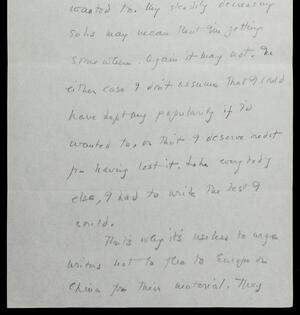 wanted to. My steadily decreasing
sales may mean that I'm getting
somewhere. Again it may not. In
either case I don't assume that I could
have kept any popularity if I'd
wanted to, or that I deserve credit
for having lost it. Like everybody
else, I had to write the best I
could.
That's why it's useless to urge
writers not to flee to Europe or
China for their material. They